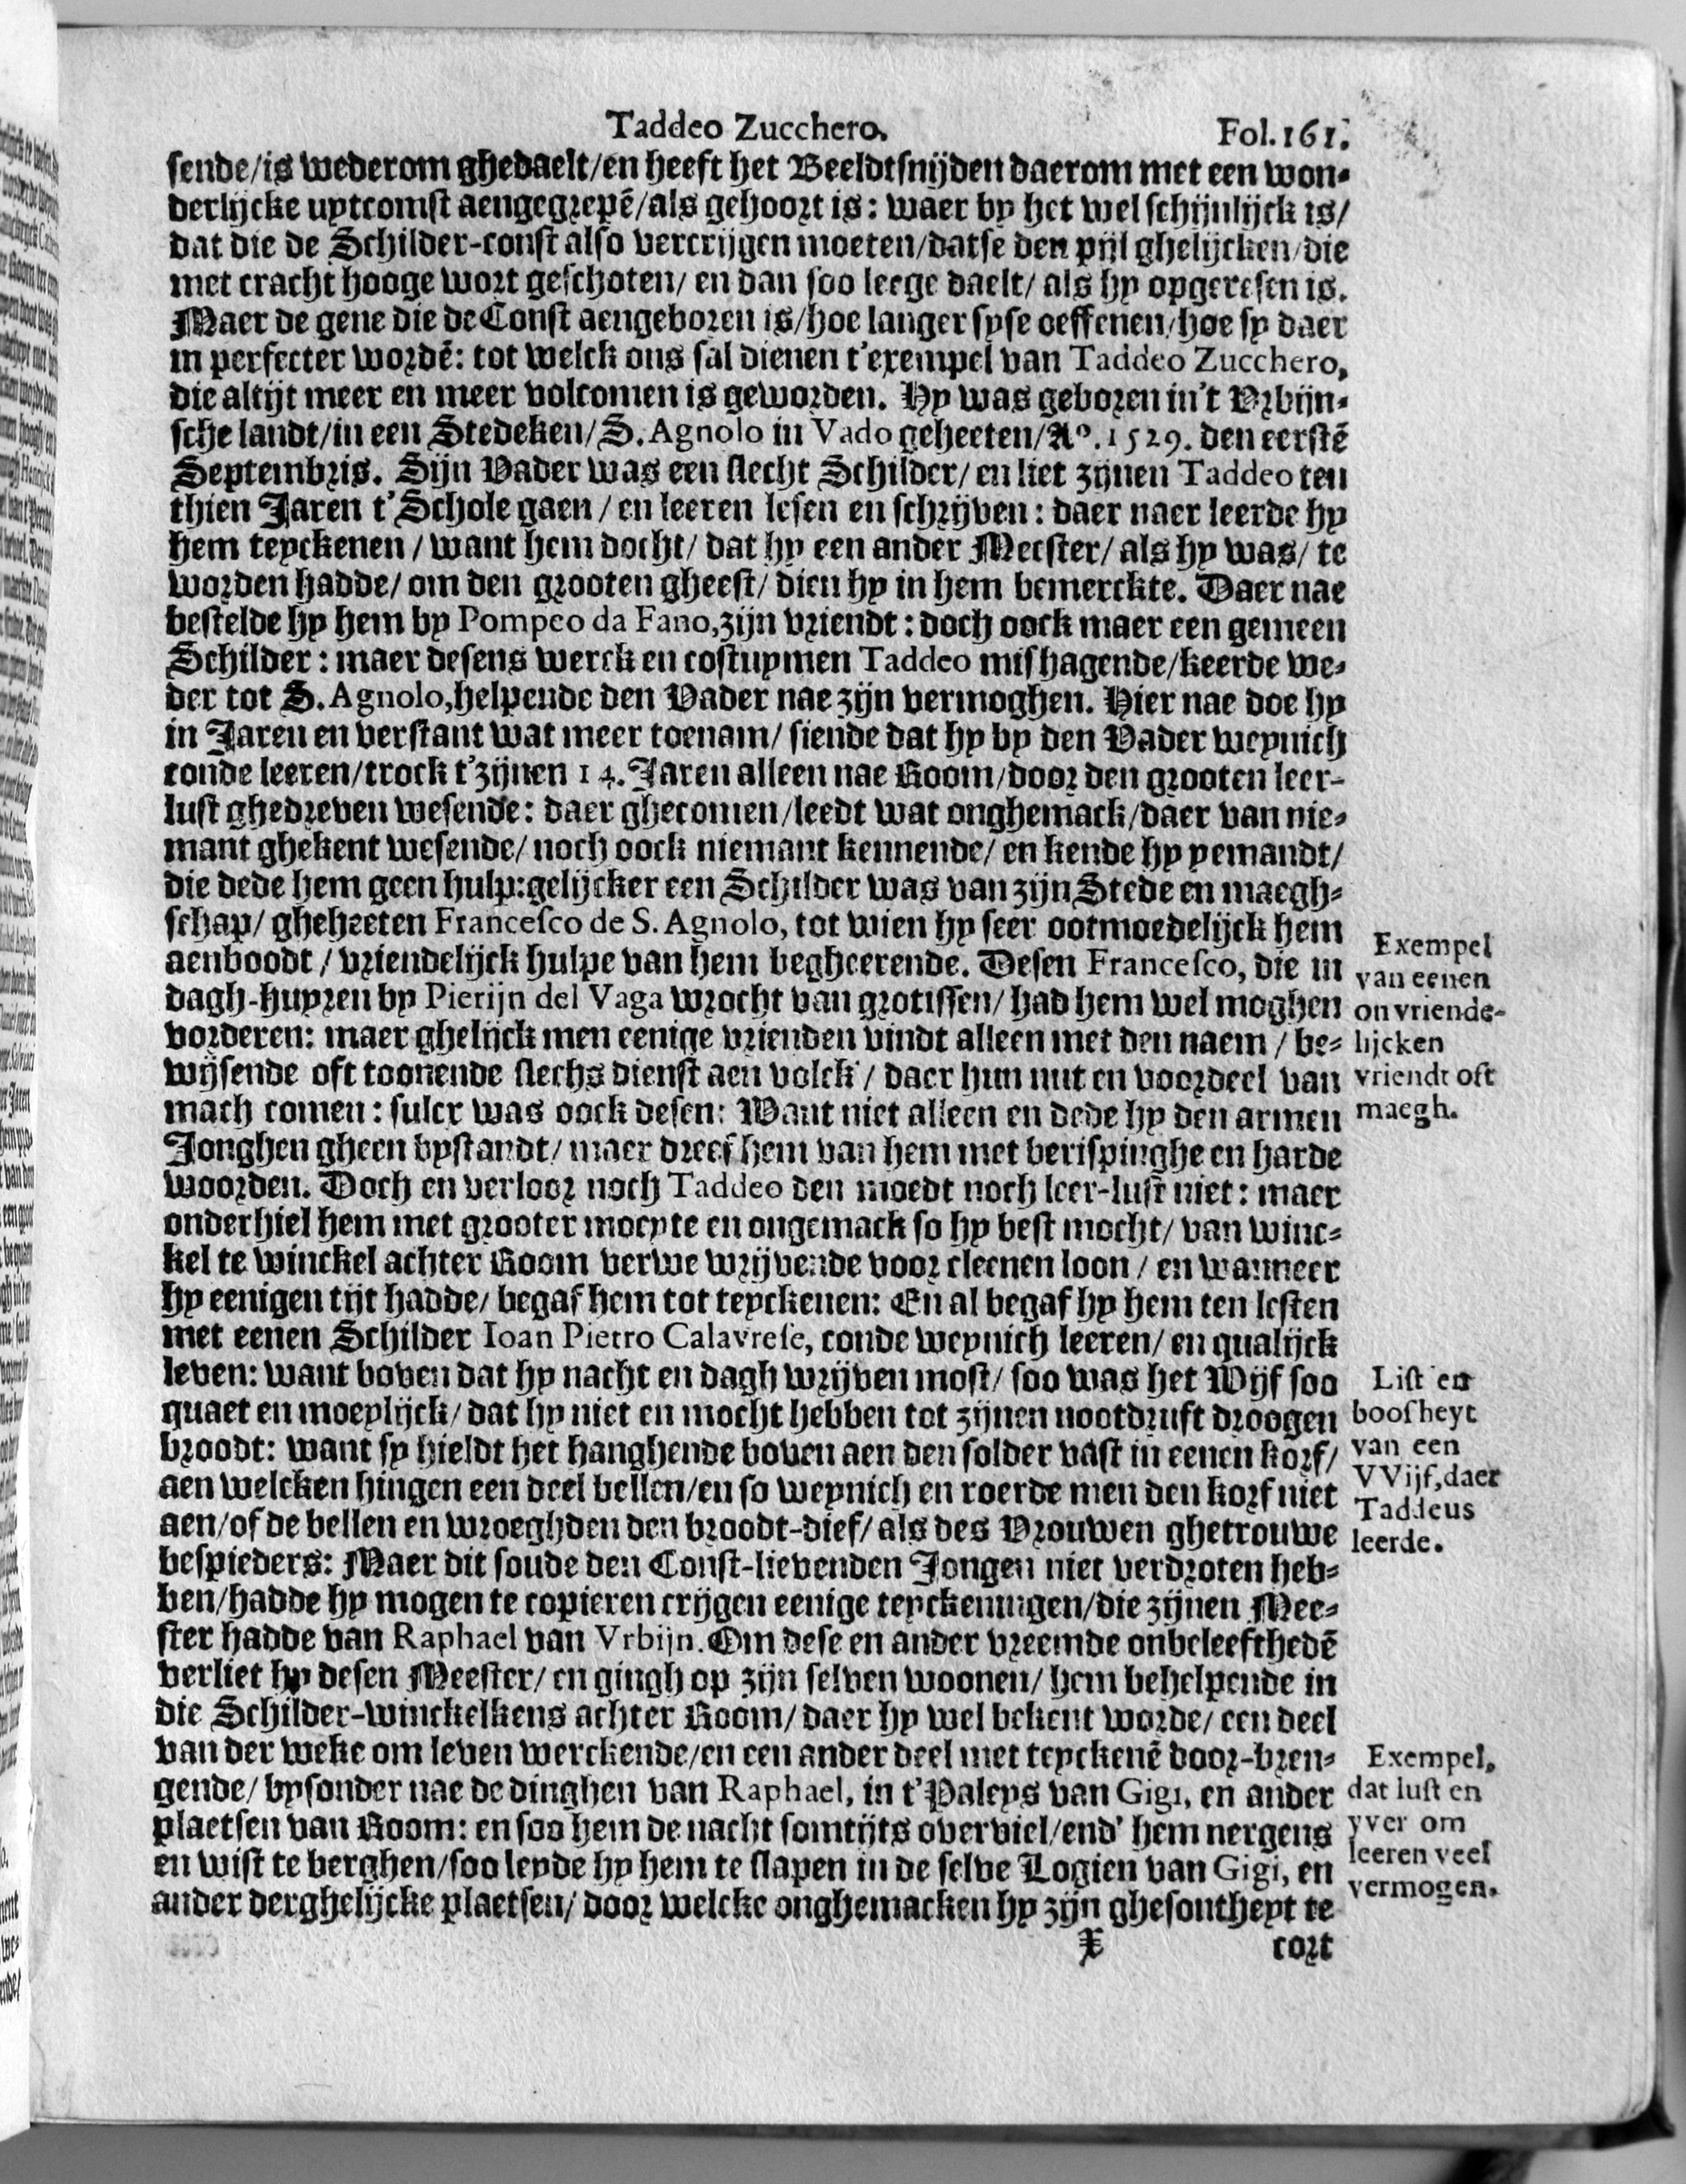 Taddeo Zucchero.
Fol. 161.
sende/is wederom ghedaelt/en heeft het Beeldtsnijden daerom met een won-
derlijcke uytcomst aengegrepē/als gehoort is: waer by het wel schijnlijck is/
dat die de Schilder-const also vercrijgen moeten/datse den pijl ghelijcken/die
met cracht hooge wort geschoten/ en dan soo leege daelt/ als hy opgeresen is.
Maer de gene die de Const aengeboren is/hoe langer syse oeffenen/hoe sy daer
in perfecter wordē: tot welck ons sal dienen t'exempel van Taddeo Zucchero,
die altijt meer en meer volcomen is geworden. Hy was geboren in't Vrbijn-
sche landt/in een Stedeken/S. Agnolo in Vado geheeten/Aº. 1529. den eerstē
Septembris. Sijn Vader was een slecht Schilder/ en liet zijnen Taddeo ten
thien Jaren t'Schole gaen / en leeren lesen en schrijven: daer naer leerde hy
hem teyckenen / want hem docht/ dat hy een ander Meester/ als hy was/ te
worden hadde/ om den grooten gheest/ dien hy in hem bemerckte. Daer nae
bestelde hy hem by Pompeo da Fano, zijn vriendt: doch oock maer een gemeen
Schilder: maer desens werck en costuymen Taddeo mishagende/keerde we-
der tot S. Agnolo, helpende den Vader nae zijn vermoghen. Hier nae doe hy
in Jaren en verstant wat meer toenam/ siende dat hy by den Vader weynich
conde leeren/trock t'zijnen 14. Jaren alleen nae Room/door den grooten leer-
lust ghedreven wesende: daer ghecomen/leedt wat onghemack/daer van nie-
mant ghekent wesende/ noch oock niemant kennende/ en kende hy yemandt/
die dede hem geen hulp:gelijcker een Schilder was van zijn Stede en maegh-
schap/ gheheeten Francesco de S. Agnolo, tot wien hy seer ootmoedelijck hem
aenboodt / vriendelijck hulpe van hem begheerende. Desen Francesco, die in
dagh-huyren by Pierijn del Vaga wrocht van grotissen/ had hem wel moghen
vorderen: maer ghelijck men eenige vrienden vindt alleen met den naem / be-
wijsende oft toonende slechs dienst aen volck / daer hun nut en voordeel van
mach comen: sulcx was oock desen: Want niet alleen en dede hy den armen
Jonghen gheen bystandt/ maer dreef hem van hem met berispinghe en harde
woorden. Doch en verloor noch Taddeo den moedt noch leer-lust niet: maer
onderhiel hem met grooter moeyte en ongemack so hy best mocht/ van winc-
kel te winckel achter Room verwe wrijvende voor cleenen loon / en wanneer
hy eenigen tijt hadde/ begaf hem tot teyckenen: En al begaf hy hem ten lesten
met eenen Schilder Ioan Pietro Calavrese, conde weynich leeren/ en qualijck
leven: want boven dat hy nacht en dagh wrijven most/ soo was het Wijf soo
quaet en moeylijck/ dat hy niet en mocht hebben tot zijnen nootdruft droogen
broodt: want sy hieldt het hanghende boven aen den solder vast in eenen korf/
aen welcken hingen een deel bellen/en so weynich en roerde men den korf niet
aen/of de bellen en wroeghden den broodt-dief/ als des Vrouwen ghetrouwe
bespieders: Maer dit soude den Const-lievenden Jongen niet verdroten heb-
ben/hadde hy mogen te copieren crijgen eenige teyckeningen/die zijnen Mee-
ster hadde van Raphael van Vrbijn. Om dese en ander vreemde onbeleefthedē
verliet hy desen Meester/ en gingh op zijn selven woonen/ hem behelpende in
die Schilder-winckelkens achter Room/ daer hy wel bekent worde/ een deel
van der weke om leven werckende/en een ander deel met teyckenē door-bren-
gende/ bysonder nae de dinghen van Raphael, in t'Paleys van Gigi, en ander
plaetsen van Room: en soo hem de nacht somtijts overviel/end' hem nergens
en wist te berghen/soo leyde hy hem te slapen in de selve Logien van Gigi, en
ander derghelijcke plaetsen/ door welcke onghemacken hy zijn ghesontheyt te
X cort
Exempel
van eenen
onvriende-
lijcken
vriendt oft
maegh.
List en
boosheyt
van een
VVijf, daer
Taddeus
leerde.
Exempel,
dat lust en
yver om
leeren veel
vermogen.